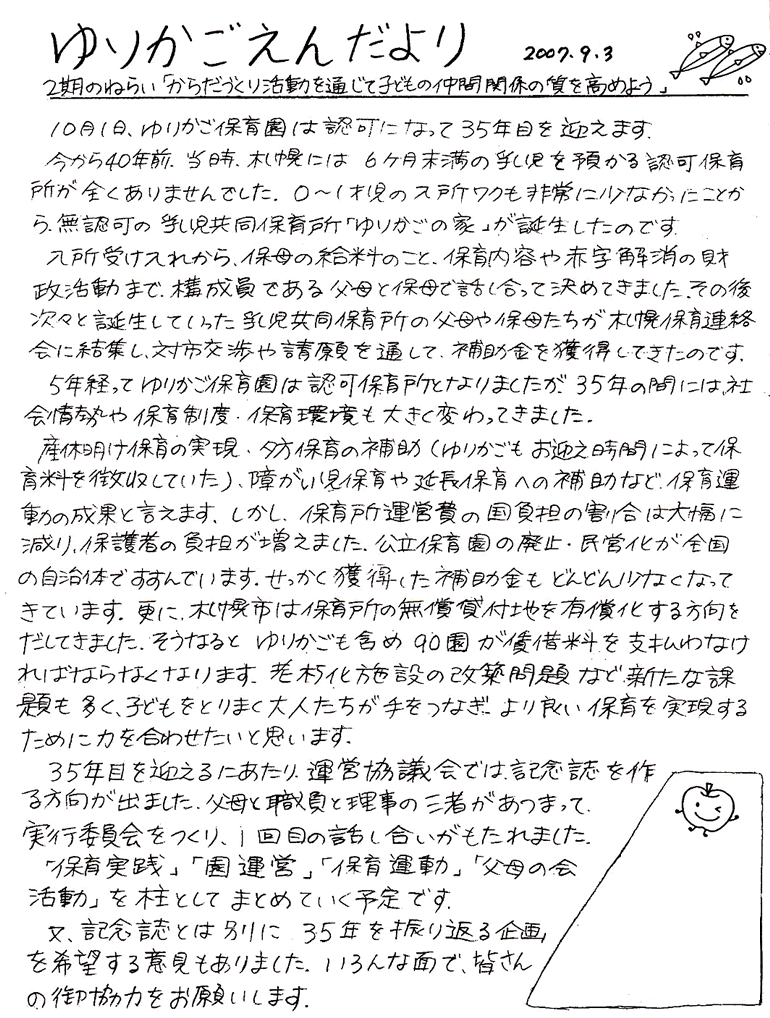 ゆりかごえんだより 2007.9.3
2期のねらい「からだづくり活動を通じて子どもの仲間関係の質を高めよう」
10月1日、ゆりかご保育園は認可になって35年目を迎えます。
今から40年前、当時、札幌には6ヶ月未満の乳児を預かる認可保育
所が全くありませんでした。0〜1才児の入所ワクも非常に少なかったことか
ら、無認可の乳児共同保育所「ゆりかごの家」が誕生したのです。
入所受け入れから、保母の給料のこと、保育内容や赤字解消の財
政活動まで、構成員である父母と保母で話し合って決めてきました。その後
次々と誕生していった乳児共同保育所の父母や保母たちが札幌保育連絡
会に結集し、対市交渉や請願を通して、補助金を獲得してきたのです。
5年経ってゆりかご保育園は認可保育所となりましたが、35年の間には、社
会情勢や保育制度・保育環境も大きく変わってきました。
産休明け保育の実現・夕方保育の補助(ゆりかごもお迎え時間によって保
育料を徴収していた)、障がい児保育や延長保育への補助など、保育運
動の成果と言えます。しかし、保育所運営費の国負担の割合は大幅に
減り、保護者の負担が増えました。公立保育園の廃止・民営化が全国
の自治体ですすんでいます。せっかく獲得した補助金もどんどん少なくなって
きています。更に、札幌市は保育所の無償貸付地を有償化する方向を
だしてきました。そうなるとゆりかごも含め90園が賃借料を支払わなけ
ればならなくなります。老朽化施設の改築問題など、新たな課
題も多く、子どもをとりまく大人たちが手をつなぎ、より良い保育を実現する
ために力を合わせたいと思います。
35年目を迎えるにあたり、運営協議会では、記念誌を作
る方向が出ました。父母と職員と理事の三者があつまって、
実行委員会をつくり、1回目の話し合いがもたれました。
「保育実践」「園運営」「保育運動」「父母の会
活動」を柱としてまとめていく予定です。
又、記念誌とは別に35年を振り返る企画
を希望する意見もありました。いろんな面で、皆さん
の御協力をお願いします。